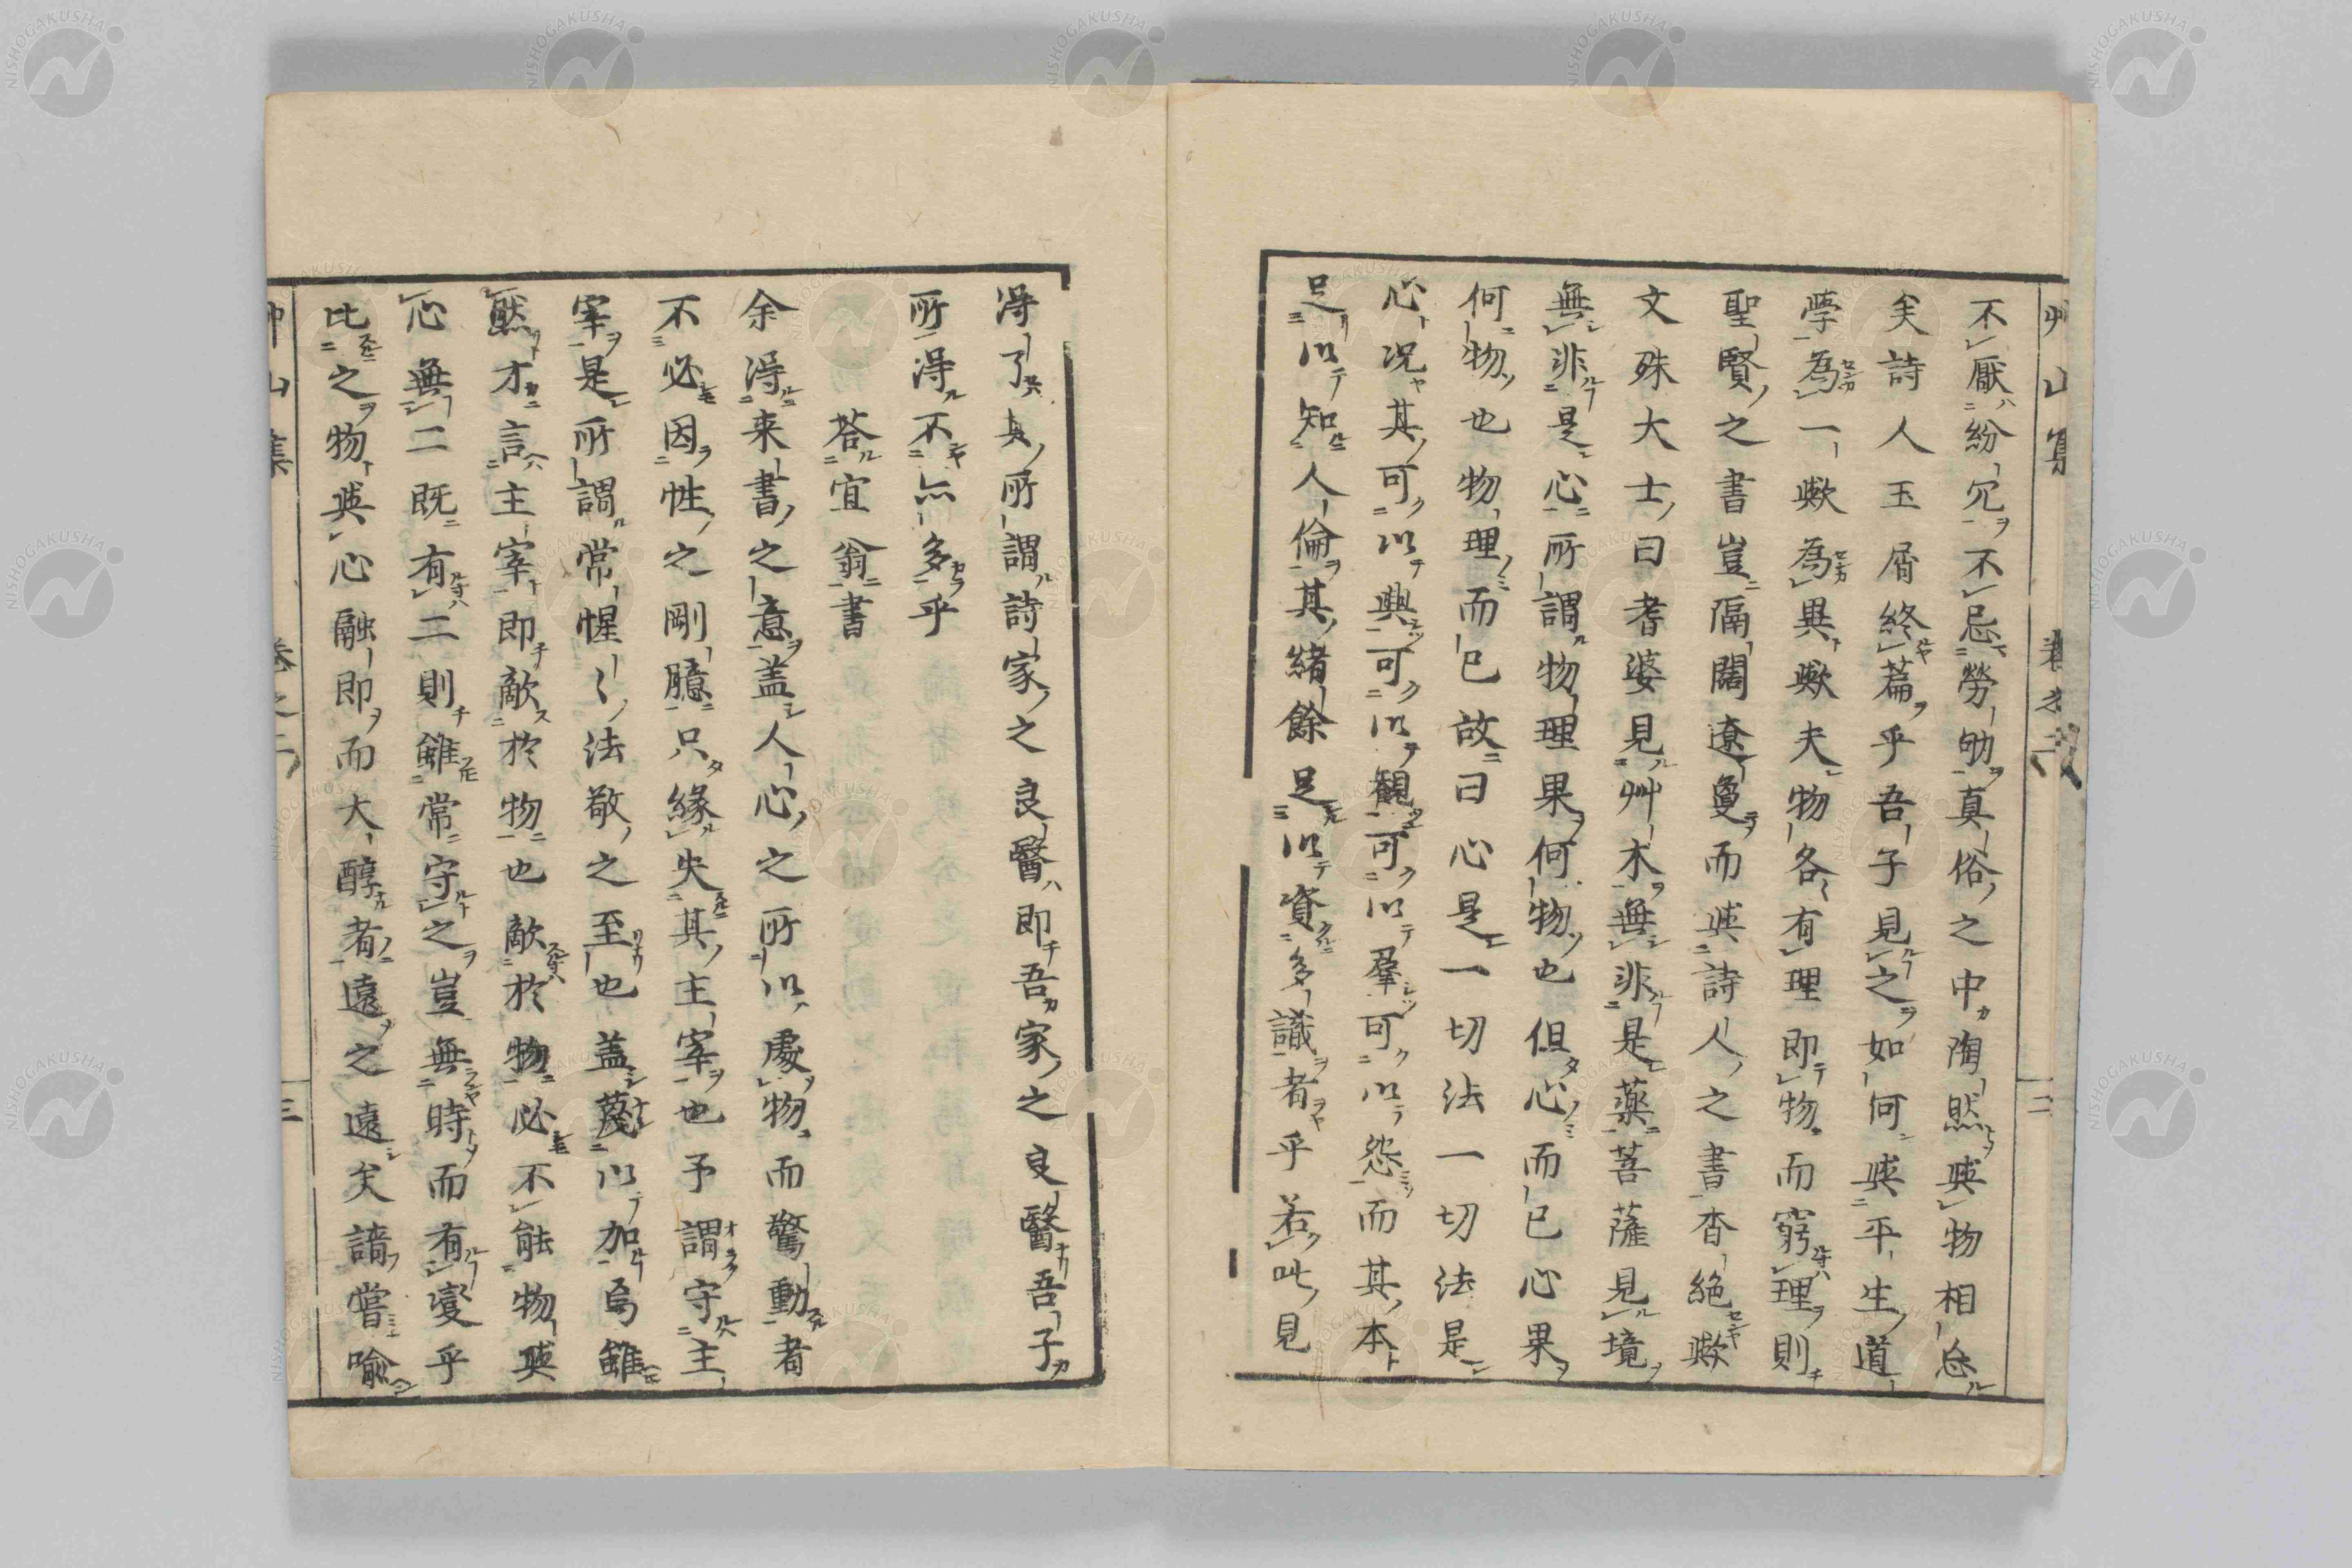 不厭紛冗不忌勞劬真俗之中陶然與物相忘
矣詩人玉屑終篇乎吾子見之如何與平生道
學為一歟為異歟夫物各有理即物而窮理則
聖賢之書豈隔闊遼敻而與詩人之書杳絶歟
文殊大士曰耆婆見艸木無非是藥菩薩見境
無非是心所謂物理果何物也但心而已心果
何物也物理而已故曰心是一切法一切法是
心况其可以興可以觀可以羣可以怨而其本
足以知人倫其緒餘足以資多識者乎若此見
得了其所謂詩家之良醫即吾家之良醫吾子
所得不亦多乎
荅宜翁書
余得来書之意盖人心之所以處物而驚動者
不必因性之剛臆只緣失其主宰也予謂守主
宰是所謂常惺〻法敬之至也盖蔑以加焉雖
然才言主宰即敵於物也敵於物必不能物與
心無二既有二則雖常守之豈無時而有變乎
比之物與心融即而大醇者遠之遠矣請嘗喻
艸山集 卷之二 三